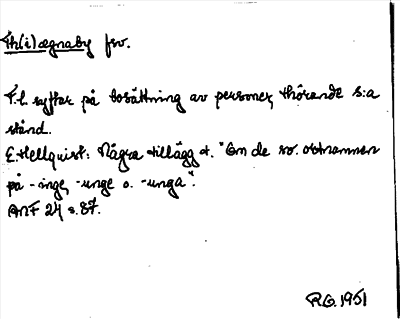 Th(i)ægnaby fsv.
F.l. syftar på bosättning av personer, tillhörande s:a
stånd.
E. Hellquist: Några tillägg t. "Om de sv. ortnamnen
på -inge, -unge o. -unga".
ANF 24 s. 87.
RG. 1951